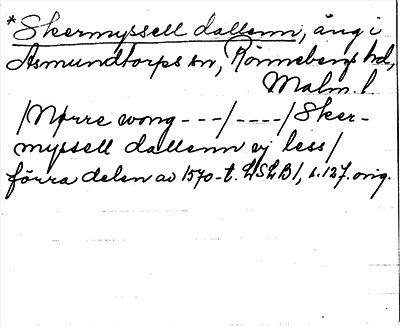 *Skermyssell dallenn, äng i
Asmundtorps sn, Rönnebergs hd,
Malm. l.
/Nørre wong ---/----/Sker-
myssell dallenn ej less/
förra delen av 1570-t. LSLB1, s. 127. orig.